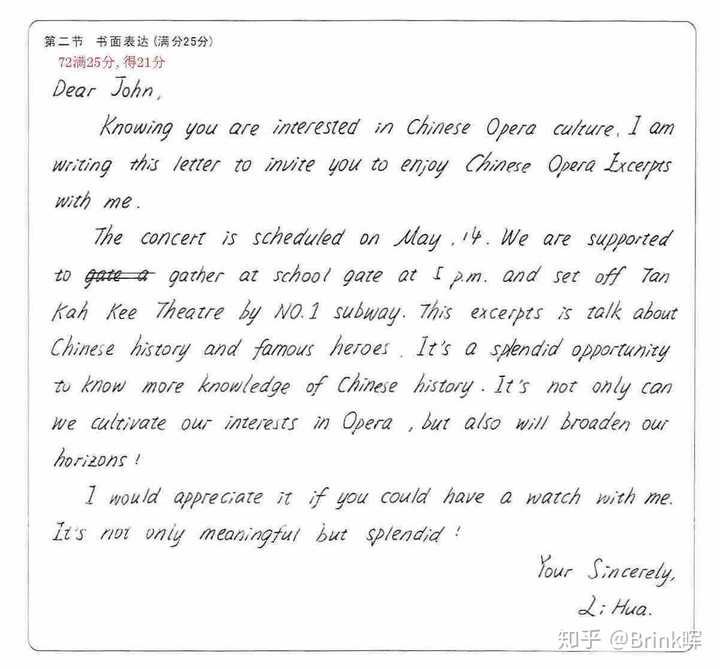 第二节 书面表达(满分25分)
72满25分,得21分
Dear John,
Knowing you are interested in Chinese Opera culture, I am
writing this letter to invite you to enjoy Chinese Opera Excerpts
with me.
The concert is scheduled on May, 14. We are supported
to gate a gather at school gate at 5 p.m. and set off Tan
Kah Kee Theatre by NO.1 subway. This excerpts is talk about
Chinese history and famous heroes. It's a splendid opportunity
to know more knowledge of Chinese history. It's not only can
we cultivate our interests in Opera, but also will broaden our
horizons!
I would appreciate it if you could have a watch with me.
It's not only meaningful but splendid!
Your Sincerely,
Li Hua.
知乎 @Brink晖